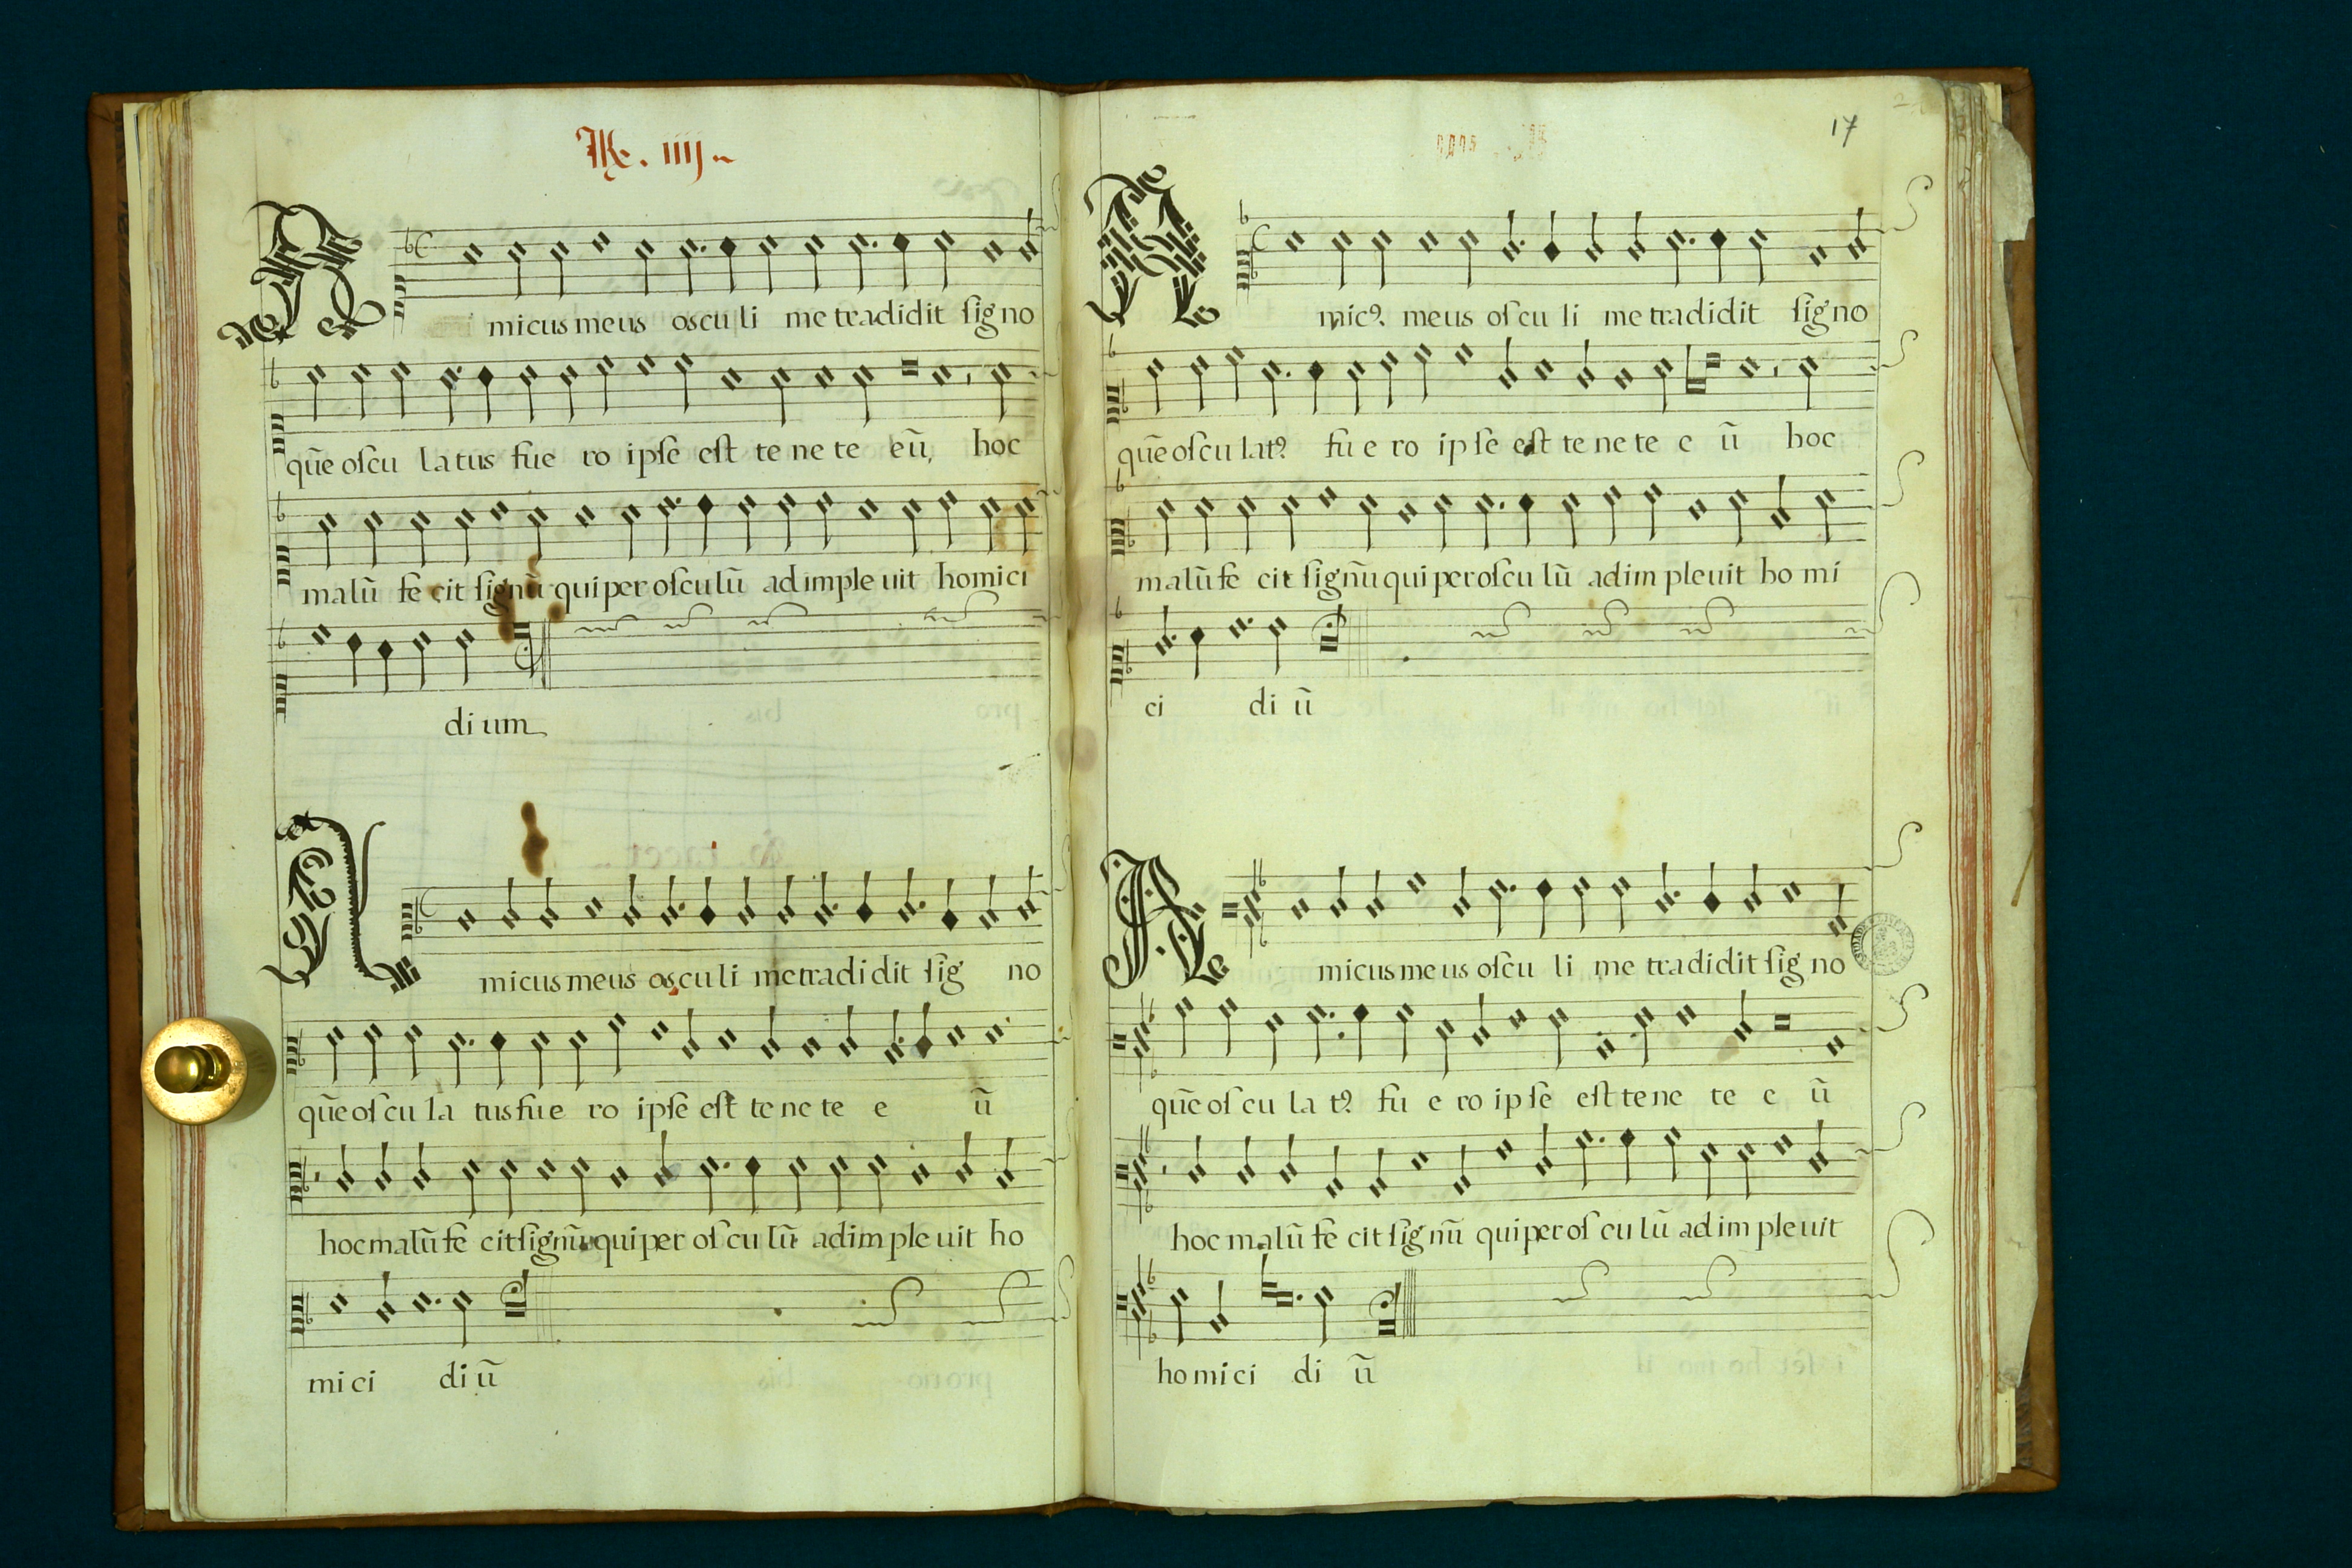 R. iiij.
A micus meus osculi me tradidit signo
quē oſcu latus fue ro ipſe eſt te ne te eū, hoc
malū fe cit ſignū qui per oſculū adimple uit homici
di um
A micus meus osculi me tradi dit ſig no
quē oſ cu la tus fu e ro ipſe eſt te ne te e ū
hoc malū fe cit ſignū qui per oſ cu lū adim ple uit ho
mi ci di ū
17
A micꝰ. meus oſcu li me tradidit ſigno
quē oſcu latꝰ fu e ro ip ſe eſt te ne te e ū hoc
malū fe cit ſignū qui per oſcu lū adim pleuit ho mi
ci di ū
A micus me us oſcu li me tradidit ſig no
quē oſ cu la tꝰ fu e ro ip ſe eſt te ne te e ū
hoc malū fe cit ſig nū qui per oſ cu lū ad im pleuit
ho mi ci di ū